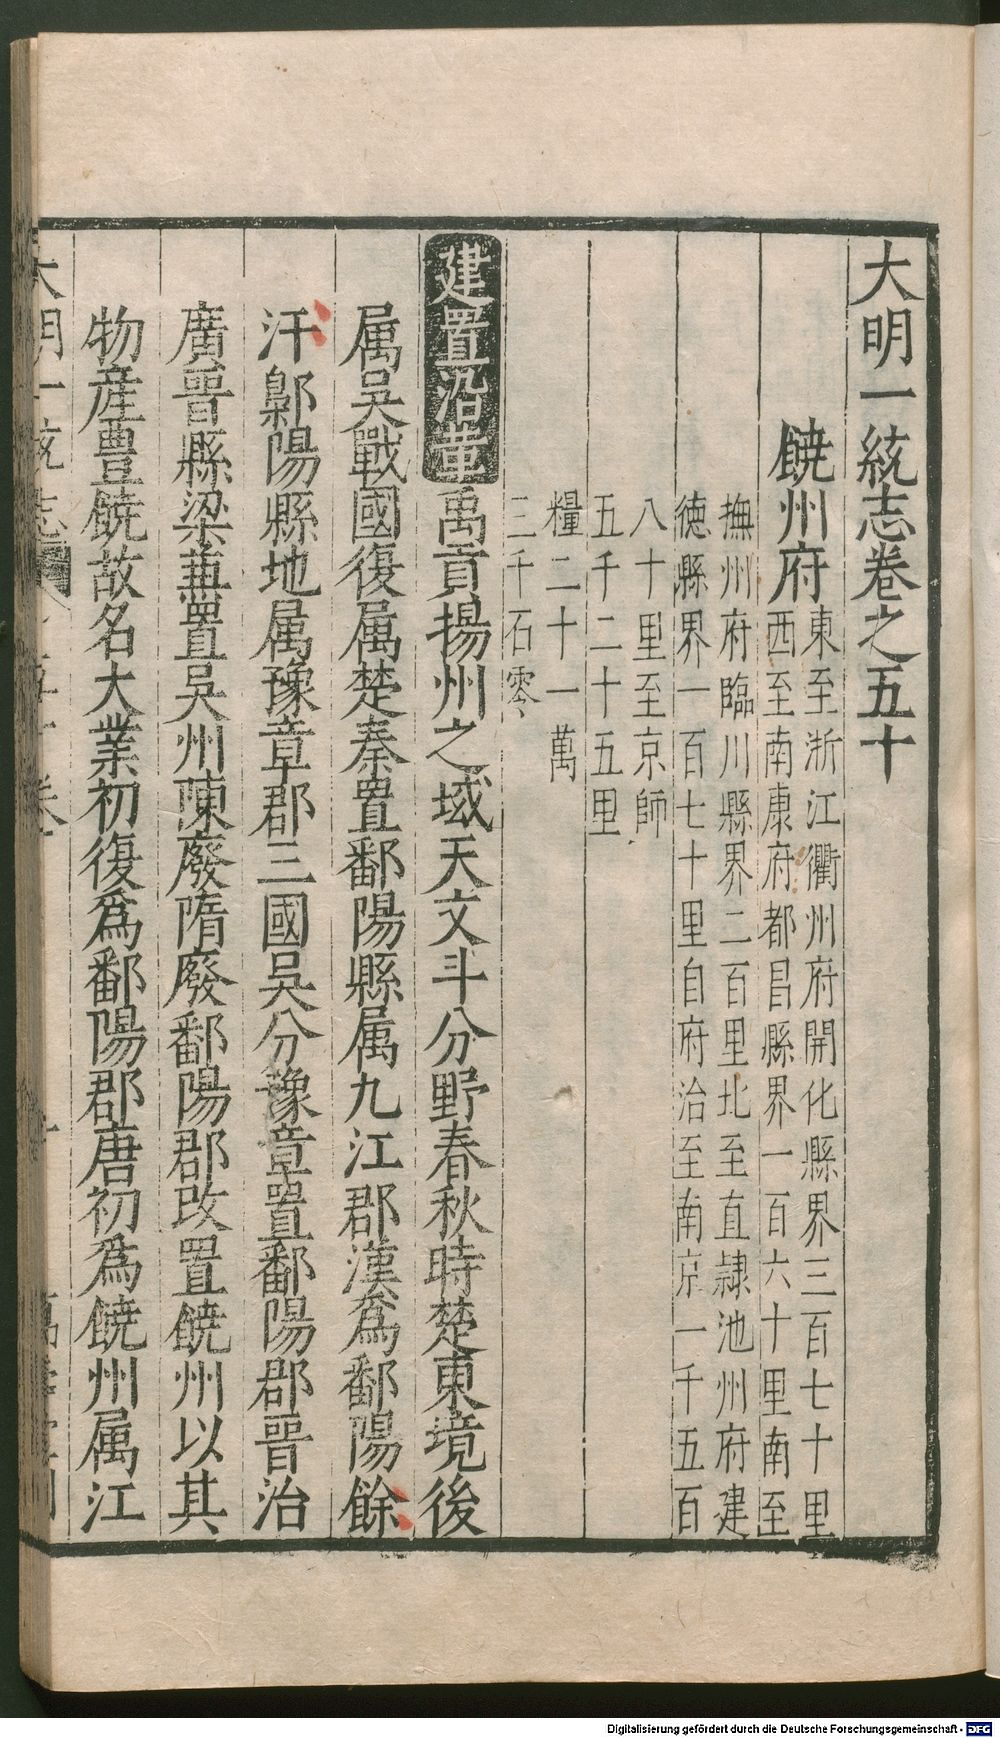 大明一統志卷之五十
饒州府
東至浙江衢州府開化縣界三百七十里
西至南康府都昌縣界一百六十里南至
撫州府臨川縣界二百里北至直隷池州府建
徳縣界一百七十里自府治至南京一千五百
八十里至京師
五千二十五里
糧二十一萬
三千石零
建置沿革禹貢揚州之域天文斗分野春秋時楚東境後
属吳戰國復属楚秦置鄱陽縣属九江郡漢爲鄱陽餘
汗鄡陽縣地属豫章郡三國吳分豫章置鄱陽郡晉治
廣晉縣梁兼置吳州陳廢隋廢鄱陽郡改置饒州以其
物産豊饒故名大業初復爲鄱陽郡唐初爲饒州属江
大明一統志
Digitalisierung gefördert durch die Deutsche Forschungsgemeinschaft - DFG